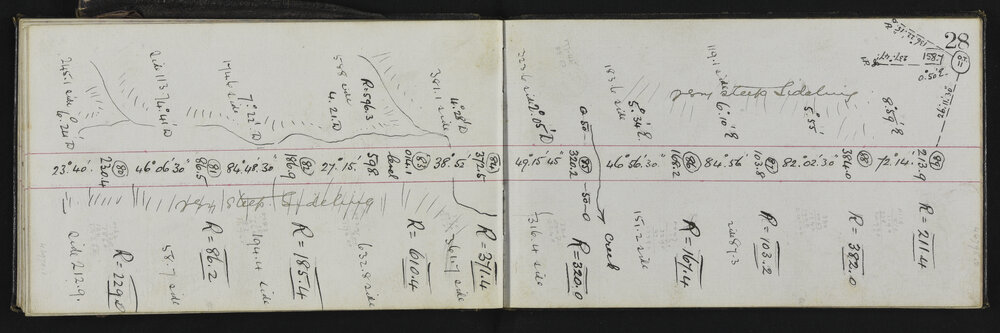 28
23°40'.
230.4
(80)
46°06'30"
86.5
(81)
84°48'.30"
186.9
(82)
27°15'.
598
level
610.1
(83)
38°53'
372.5
(84)
49.15'.45"
320.2
(85)
46°56.30"
168.2
(86)
84°56'
103.8
(87)
82°02'.30"
384.0
(88)
72°14'.
213.9
245.1 side
6.24'D
side 113.7
4°41'D
194.6 side
7°22'D
598 side
4.21.D
R=596.3
381.1 side
4°28'D
2°05'D
0-50
-50-0
Creek
183.6 side
5°34'E
119.1 side
6°10'E
very steep Sideling
5°55'
8°59'E
very steep Sideling
side 212.9.
R=229.0
58.7 side
R=86.2
194.4 side
R=185.4
632.8 side
R=610.4
361.7 side
R=371.4
316.4 side
R=320.0
151.2 side
R=167.4
side 89.3
R=103.2
R=382.0
R=211.4